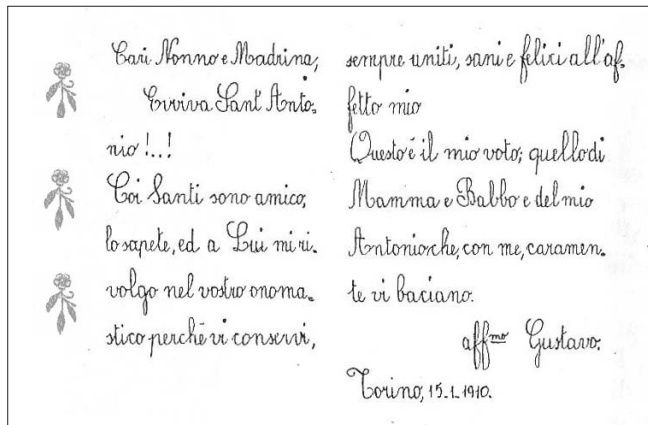 Cari Nonno e Madrina,
Evviva Sant'Anto-
nio!..!
Coi Santi sono amico,
lo sapete, ed a Lui mi ri-
volgo nel vostro onoma-
stico perchè vi conservi,
sempre uniti, sani e felici all'af-
fetto mio
Questo è il mio voto; quello di
Mamma e Babbo e del mio
Antonio che, con me, caramen-
te vi baciano.
aff.mo Gustavo.
Torino, 15.1.1910.